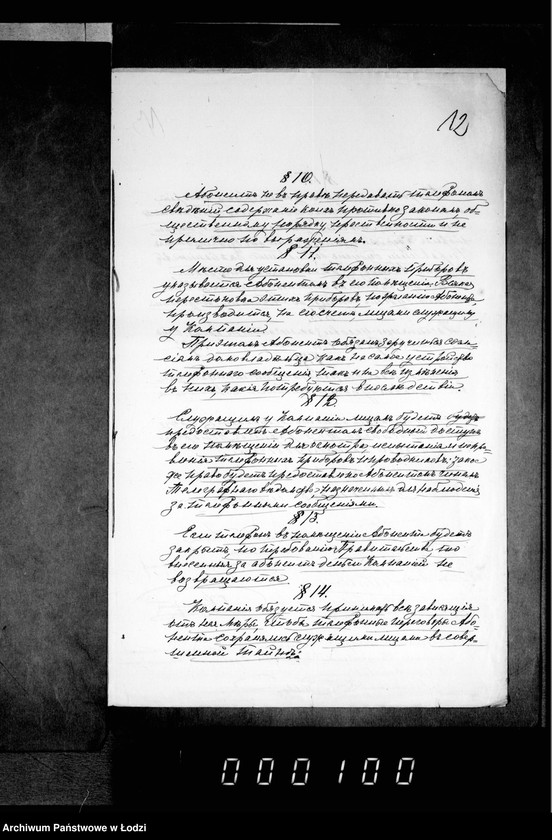 12
§ 10.
Абонентъ не въ правѣ передавать телефономъ
свѣдѣній, содержаніе коихъ противно законамъ, об-
щественному порядку, нравственности и не
прилично по выраженіямъ.
§ 11.
Мѣсто для установки телефонныхъ приборовъ
указывается Абонентомъ въ его помѣщеніи. Всякая
перестановка этихъ приборовъ, по желанію Абонента
производится, на его счетъ, лицами служащими
у Компаніи.
При этомъ Абонентъ обязанъ заручиться согла-
сіемъ домовладѣльца какъ на самое устройство
телефоннаго сообщенія, такъ и на всѣ измѣненія
въ немъ, какія потребуются впослѣдствіи.
§ 12.
Служащимъ у Компаніи лицамъ будетъ
предоставленъ Абонентомъ свободный доступъ
въ его помѣщеніи для осмотра, испытанія и исправ-
ленія телефонныхъ приборовъ и проводниковъ;
же право будетъ предоставлено Абонентомъ чинамъ
Телеграфнаго вѣдомства, назначеннымъ для наблюденія
за телефонными сообщеніями.
§ 13.
Если телефонъ въ помѣщеніи Абонента будетъ
закрытъ, по требованію Правительства, то
внесенныя за абонентъ деньги Компаніей не
возвращаются.
§ 14.
Компанія обязуется принимать всѣ зависящія
отъ нея мѣры, чтобы телефонные переговоры Або-
нента сохранялись служащими лицами въ совер-
шенной тайнѣ.
000100
Archiwum Państwowe w Łodzi